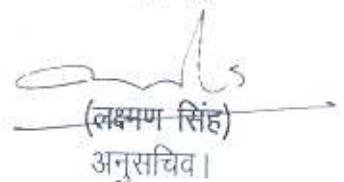 (लक्ष्मण सिंह)
अनुसचिव।